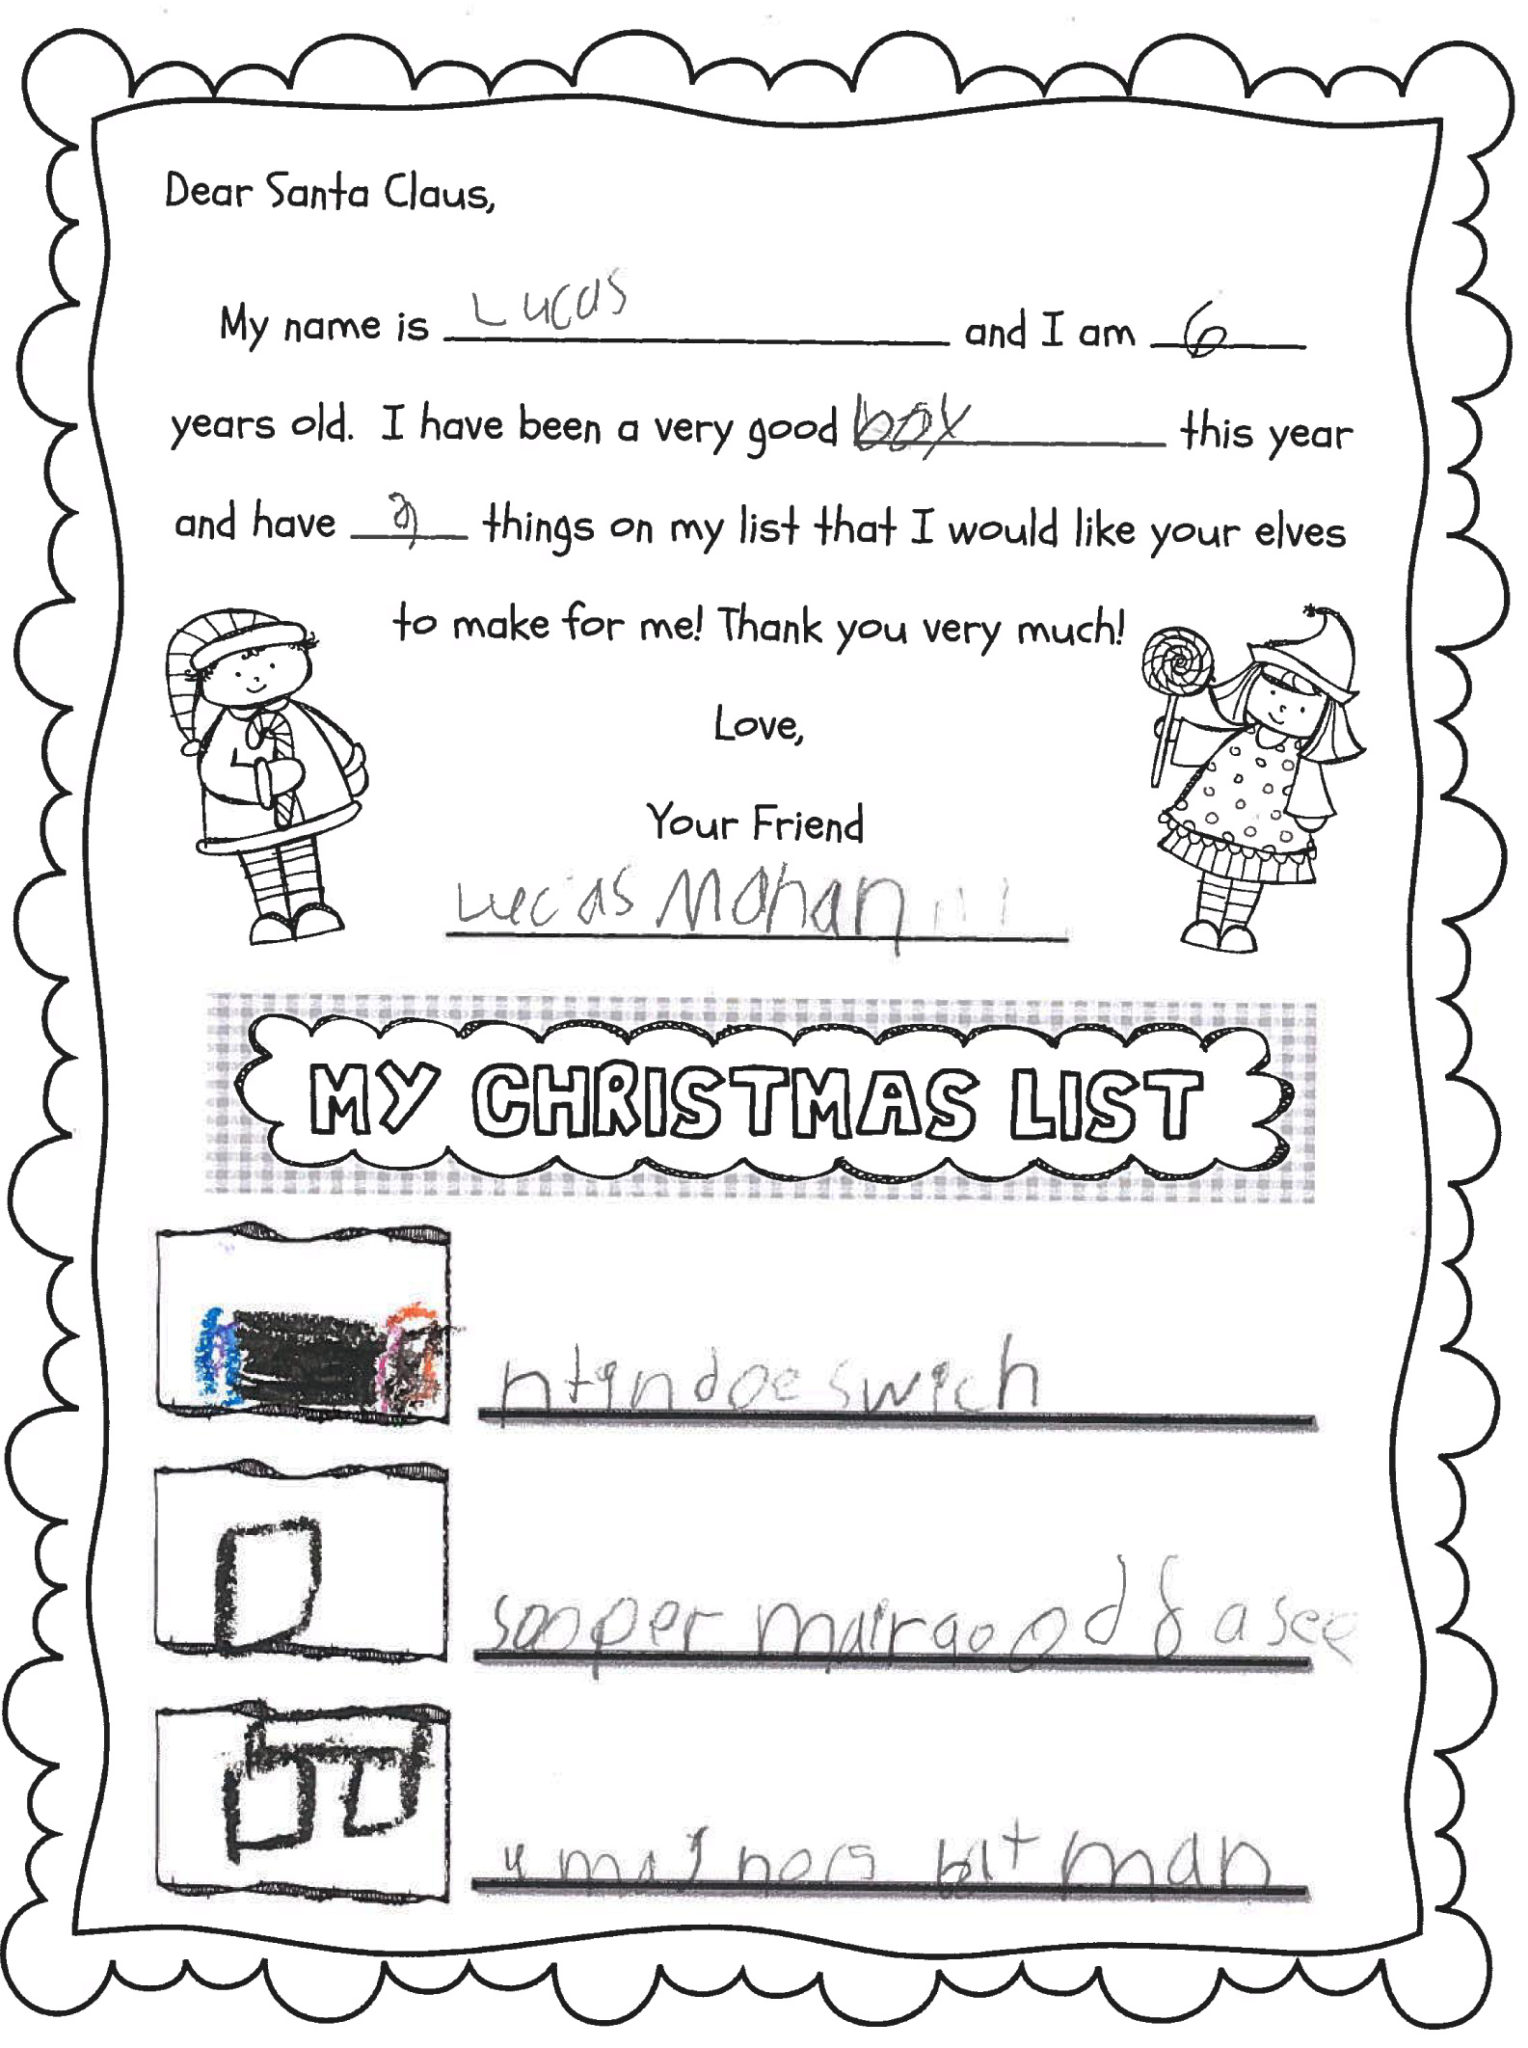 Dear Santa Claus,
My name is Lucas and I am 6
years old. I have been a very good boy this year
and have 2 things on my list that I would like your elves
to make for me! Thank you very much!
Love,
Your Friend
Lucas Mahan
MY CHRISTMAS LIST
ntindoe swich
sooper mair good
bat man